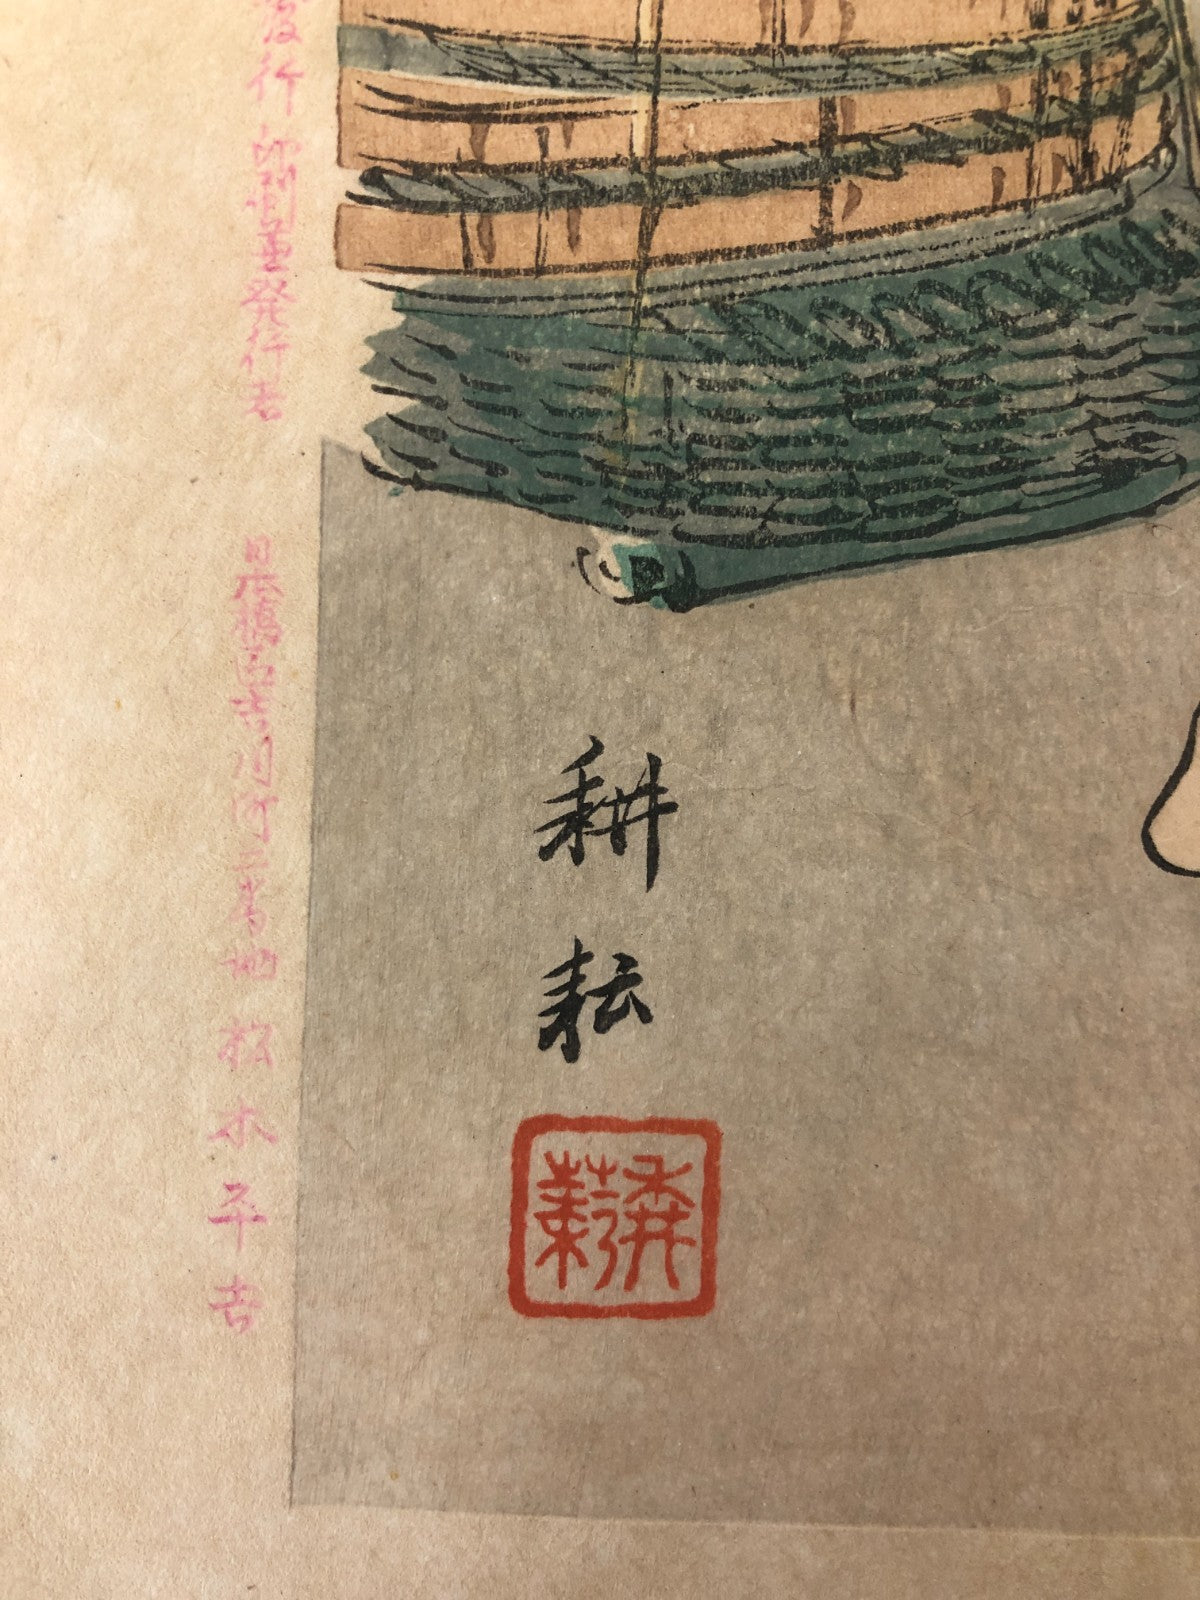 耕耘
発行印刷兼発行者 日本橋区吉川町二番地 松木平吉